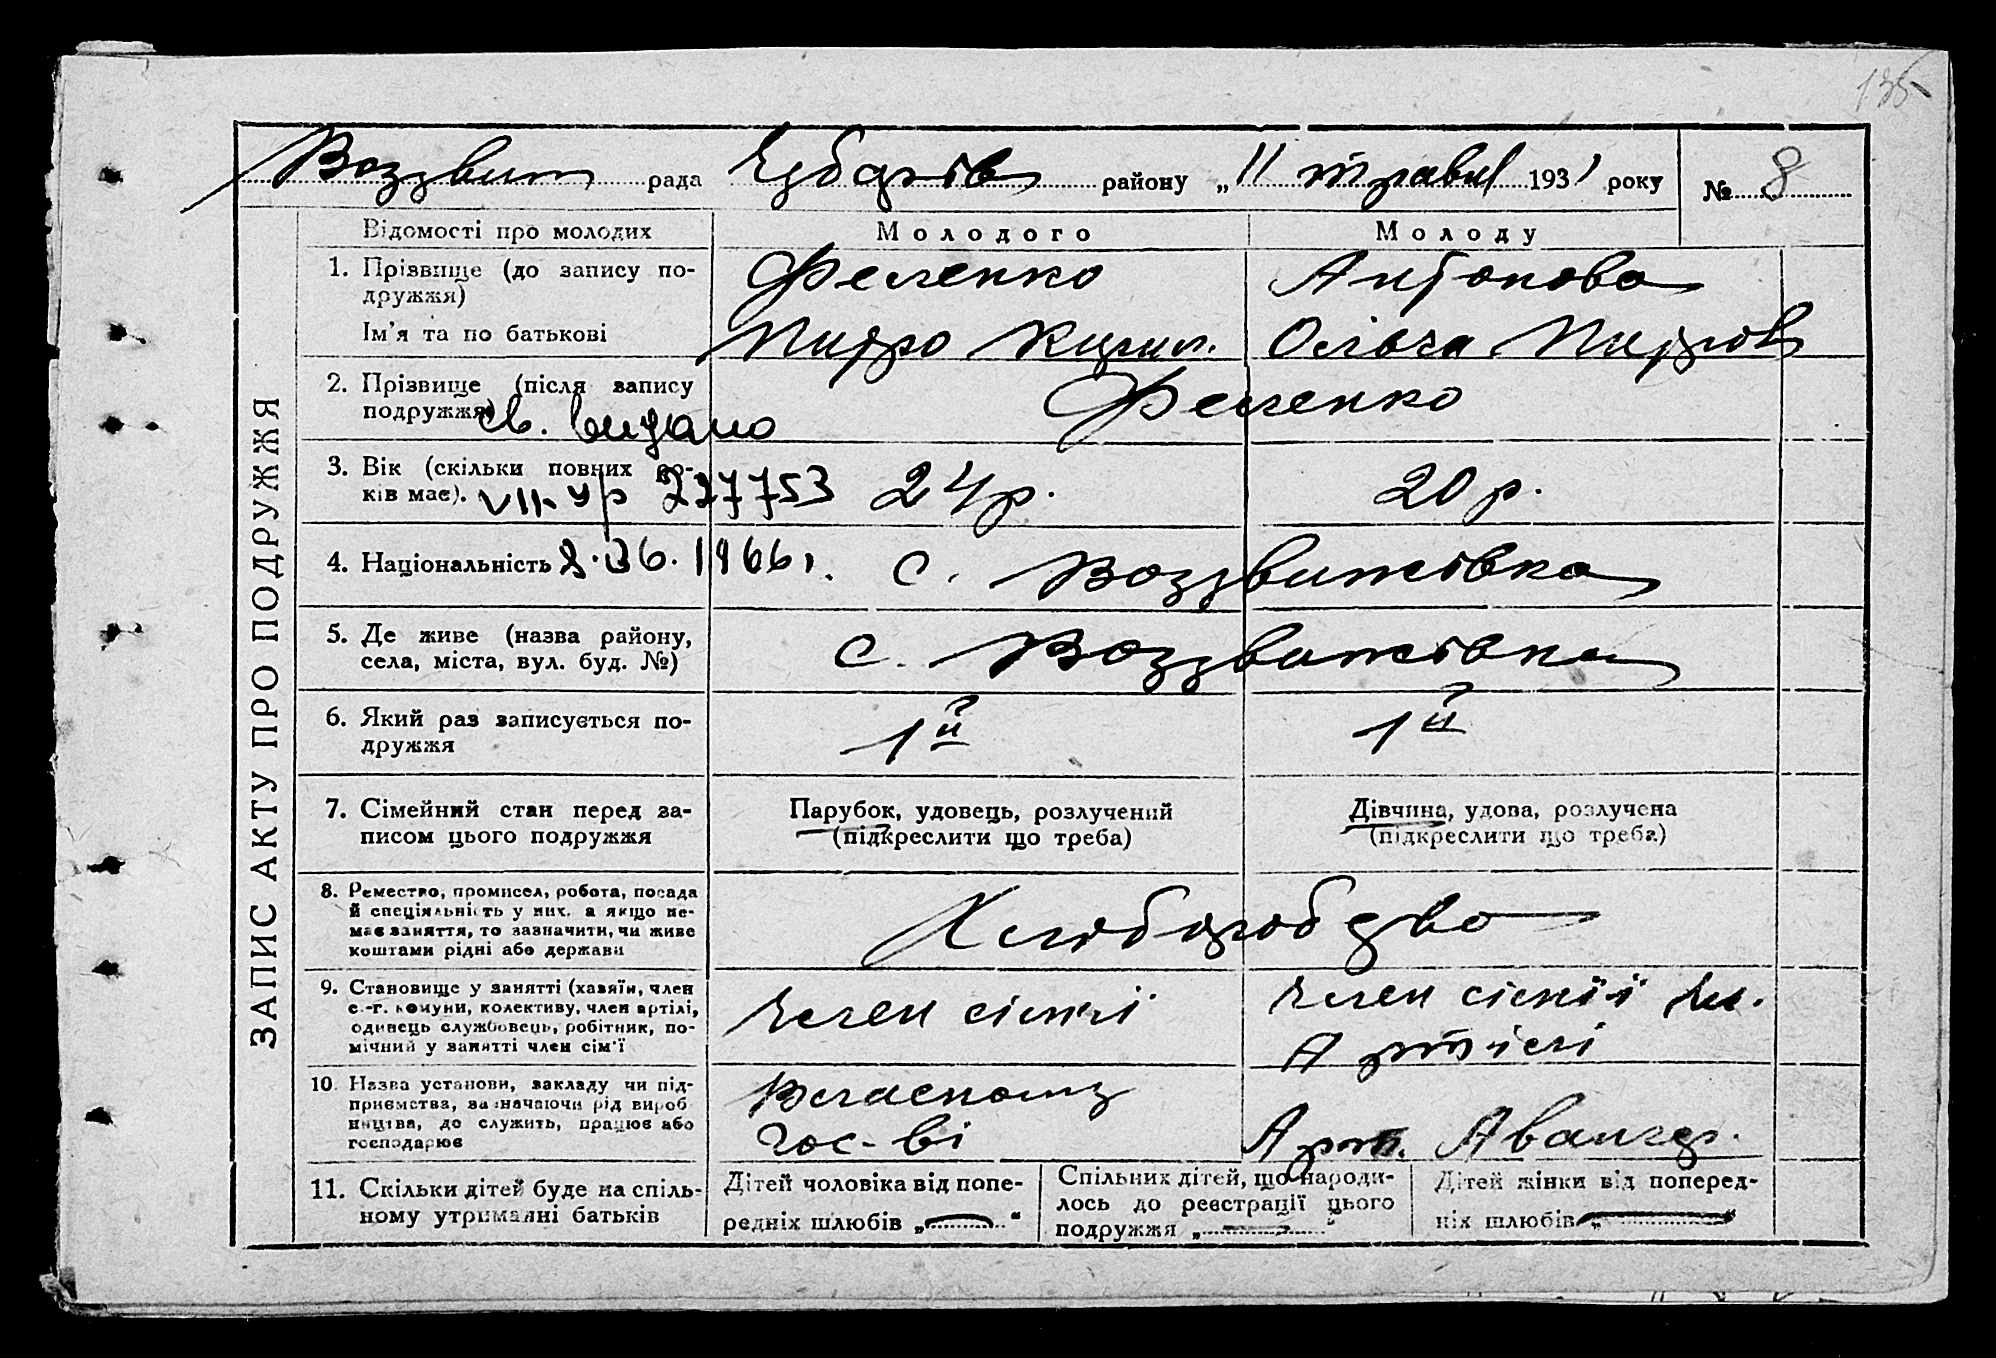 135
Воздвиж рада Чубарів району „11 травня 1931 року № 8
ЗАПИС АКТУ ПРО ПОДРУЖЖЯ
Відомості про молодих
Молодого
Молоду
1. Прізвище (до запису по-
дружжя)
Ім'я та по батькові
Феленко
Антонова
Митро Кирил.
Ольга Митров
2. Прізвище (після запису
подружжя)
Феленко
св. видано
3. Вік (скільки повних ро-
ків має).
24 р.
20 р.
VІІ-УР 227753
4. Національність
8.06.1966г.
с. Воздвижівка
5. Де живе (назва району,
села, міста, вул. буд. №)
с. Воздвижівка
6. Який раз записується по-
дружжя
1й
1й
7. Сімейний стан перед за-
писом цього подружжя
Парубок, удовець, розлучений
(підкреслити що треба)
Дівчина, удова, розлучена
(підкреслити що треба)
8. Ремество, промисел, робота, посада
й спеціяльність у них, а якщо не-
має заняття, то зазначити, чи живе
коштами рідні або держави
Хліборобство
9. Становище у занятті (хазяїн, член
с.-г. комуни, колективу, член артілі,
одинець службовець, робітник, по-
мічний у занятті член сім'ї
Член сімї
Член сімїї чл.
Артілі
10. Назва установи, закладу чи під-
приємства, зазначаючи рід вироб
ництва, де служить, працює або
господарює
Власному
гос-ві
Арт. Авангар.
11. Скільки дітей буде на спіль-
ному утриманні батьків
Дітей чоловіка від попе-
редніх шлюбів „ — “
Спільних дітей, що народи-
лось до реєстрації цього
подружжя „ — “
Дітей жінки від поперед-
ніх шлюбів „ — “